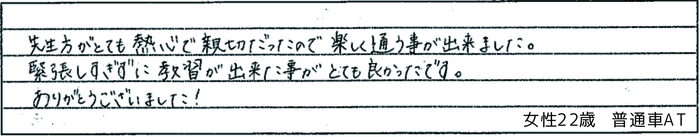 先生方がとても熱心で親切だったので楽しく通う事が出来ました。
緊張しすぎずに教習が出来た事がとても良かったです。
ありがとうございました!
女性22歳 普通車AT